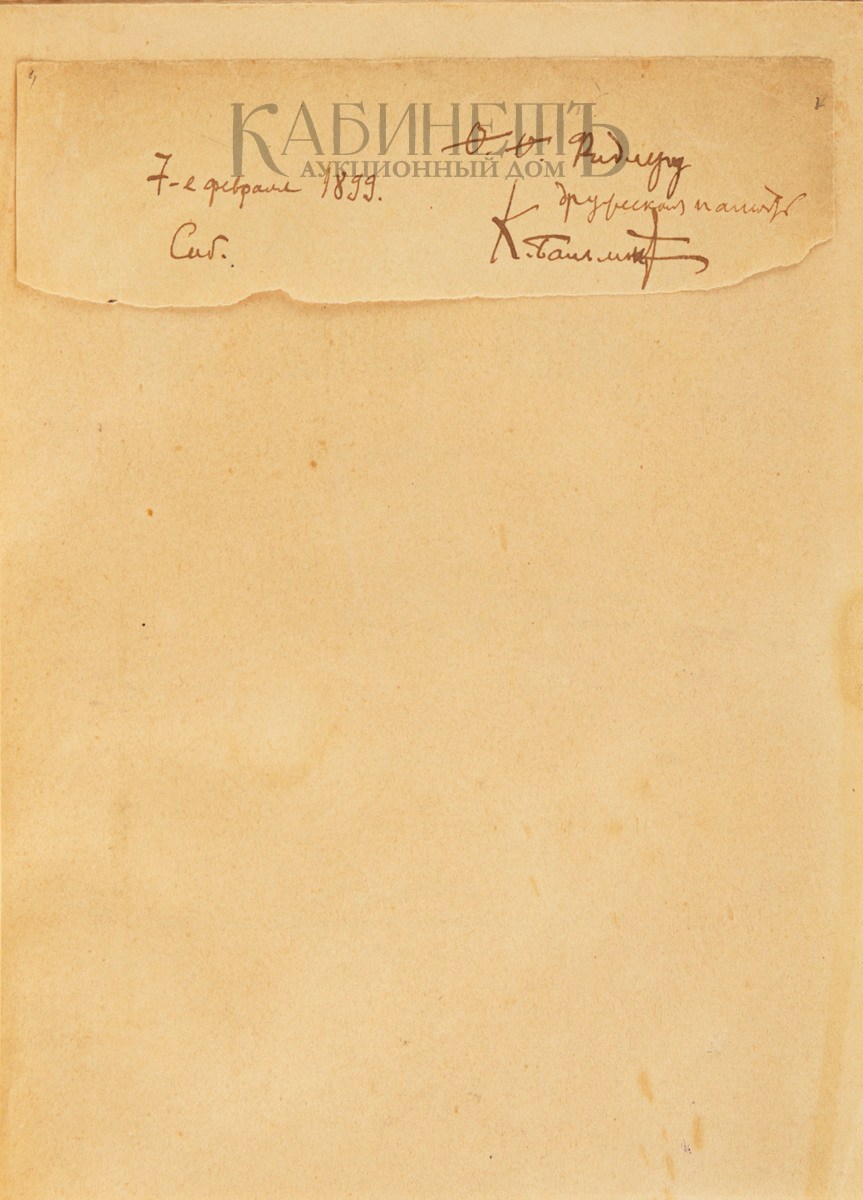 КАБИНЕТЪ
АУКЦИОННЫЙ ДОМ
Ѳ. Ѳ. Фидлеру
7-е февраля 1899.
дружеская память
Спб.
К. Бальмонт